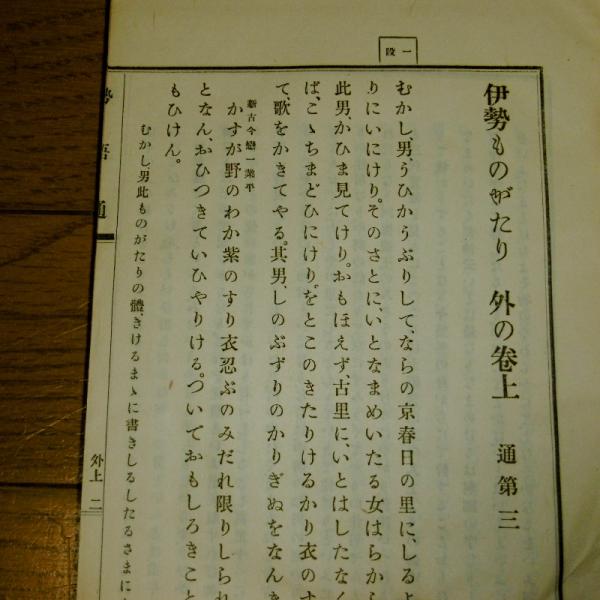 一段
伊勢ものがたり 外の卷上 通第三
むかし、男、うひかうぶりして、ならの京春日の里に、しるよ
りにいにけり。そのさとに、いとなまめいたる女はらから
此男、かひま見てけり。おもほえず、古里に、いとはしたなく
ば、こゝちまどひにけり。をとこのきたりけるかり衣のす
て、歌をかきてやる。其男、しのぶずりのかりぎぬをなんき
新古今戀一業平
かすが野のわか紫のすり衣忍ぶのみだれ限りしられ
となん、おひつきていひやりける。ついておもしろきこと
もひけん。
むかし、男此ものがたりの體、きけるまゝに書きしるしたるさまに
勢語通
外上 二